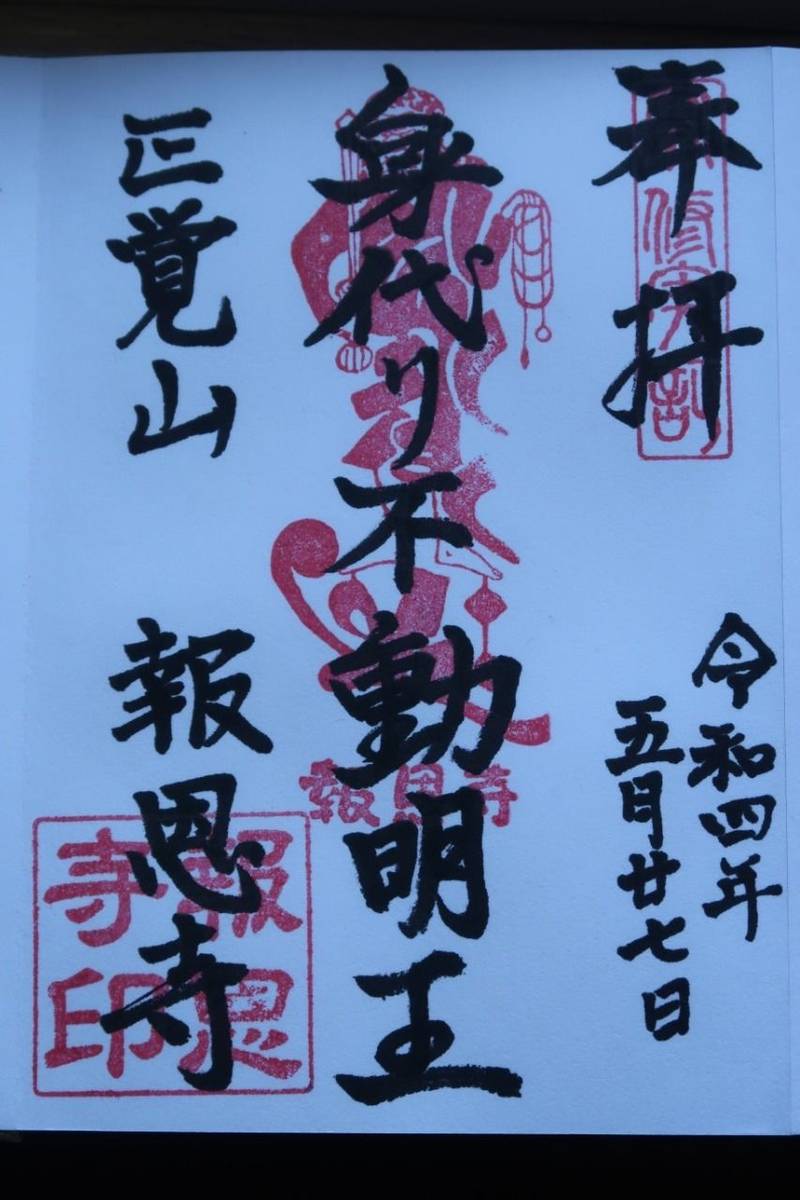 奉拝
令和四年
五月廿七日
身代り不動明王
報恩寺
正覚山 報恩寺
報恩寺印